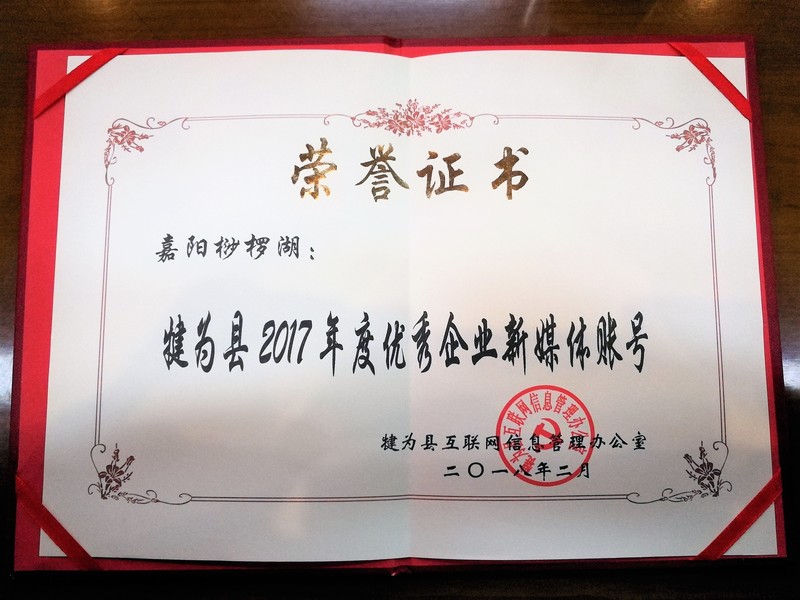 荣誉证书
嘉阳桫椤湖：
犍为县2017年度优秀企业新媒体账号
犍为县互联网信息管理办公室
二〇一八年二月
犍为县互联网信息管理办公室